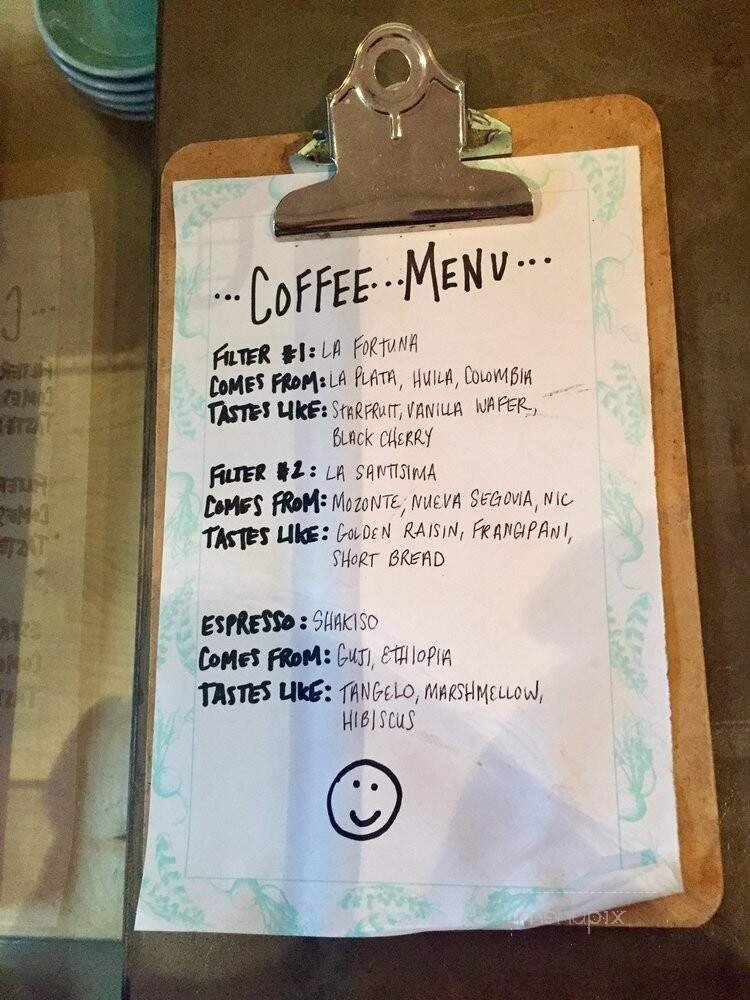 ...COFFEE...MENU...
FILTER #1: LA FORTUNA
COMES FROM: LA PLATA, HUILA, COLOMBIA
TASTES LIKE: STARFRUIT, VANILLA WAFER,
BLACK CHERRY
FILTER #2: LA SANTISIMA
COMES FROM: MOZONTE, NUEVA SEGOVIA, NIC
TASTES LIKE: GOLDEN RAISIN, FRANGIPANI,
SHORT BREAD
ESPRESSO: SHAKISO
COMES FROM: GUJI, ETHIOPIA
TASTES LIKE: TANGELO, MARSHMELLOW,
HIBISCUS
menupix